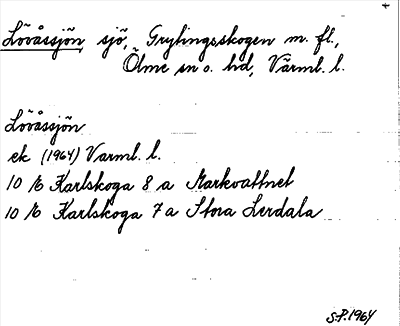 Lövåssjön, sjö, Gryttngsskogen m. fl.,
Ölme sn o. hd, Värml. l.
Lövåssjön
ek (1964) Varml. l.
10 E Karlskoga 8 a Markvattnet
10 E Karlskoga 7 a Stora Lerdala
S.P. 1964